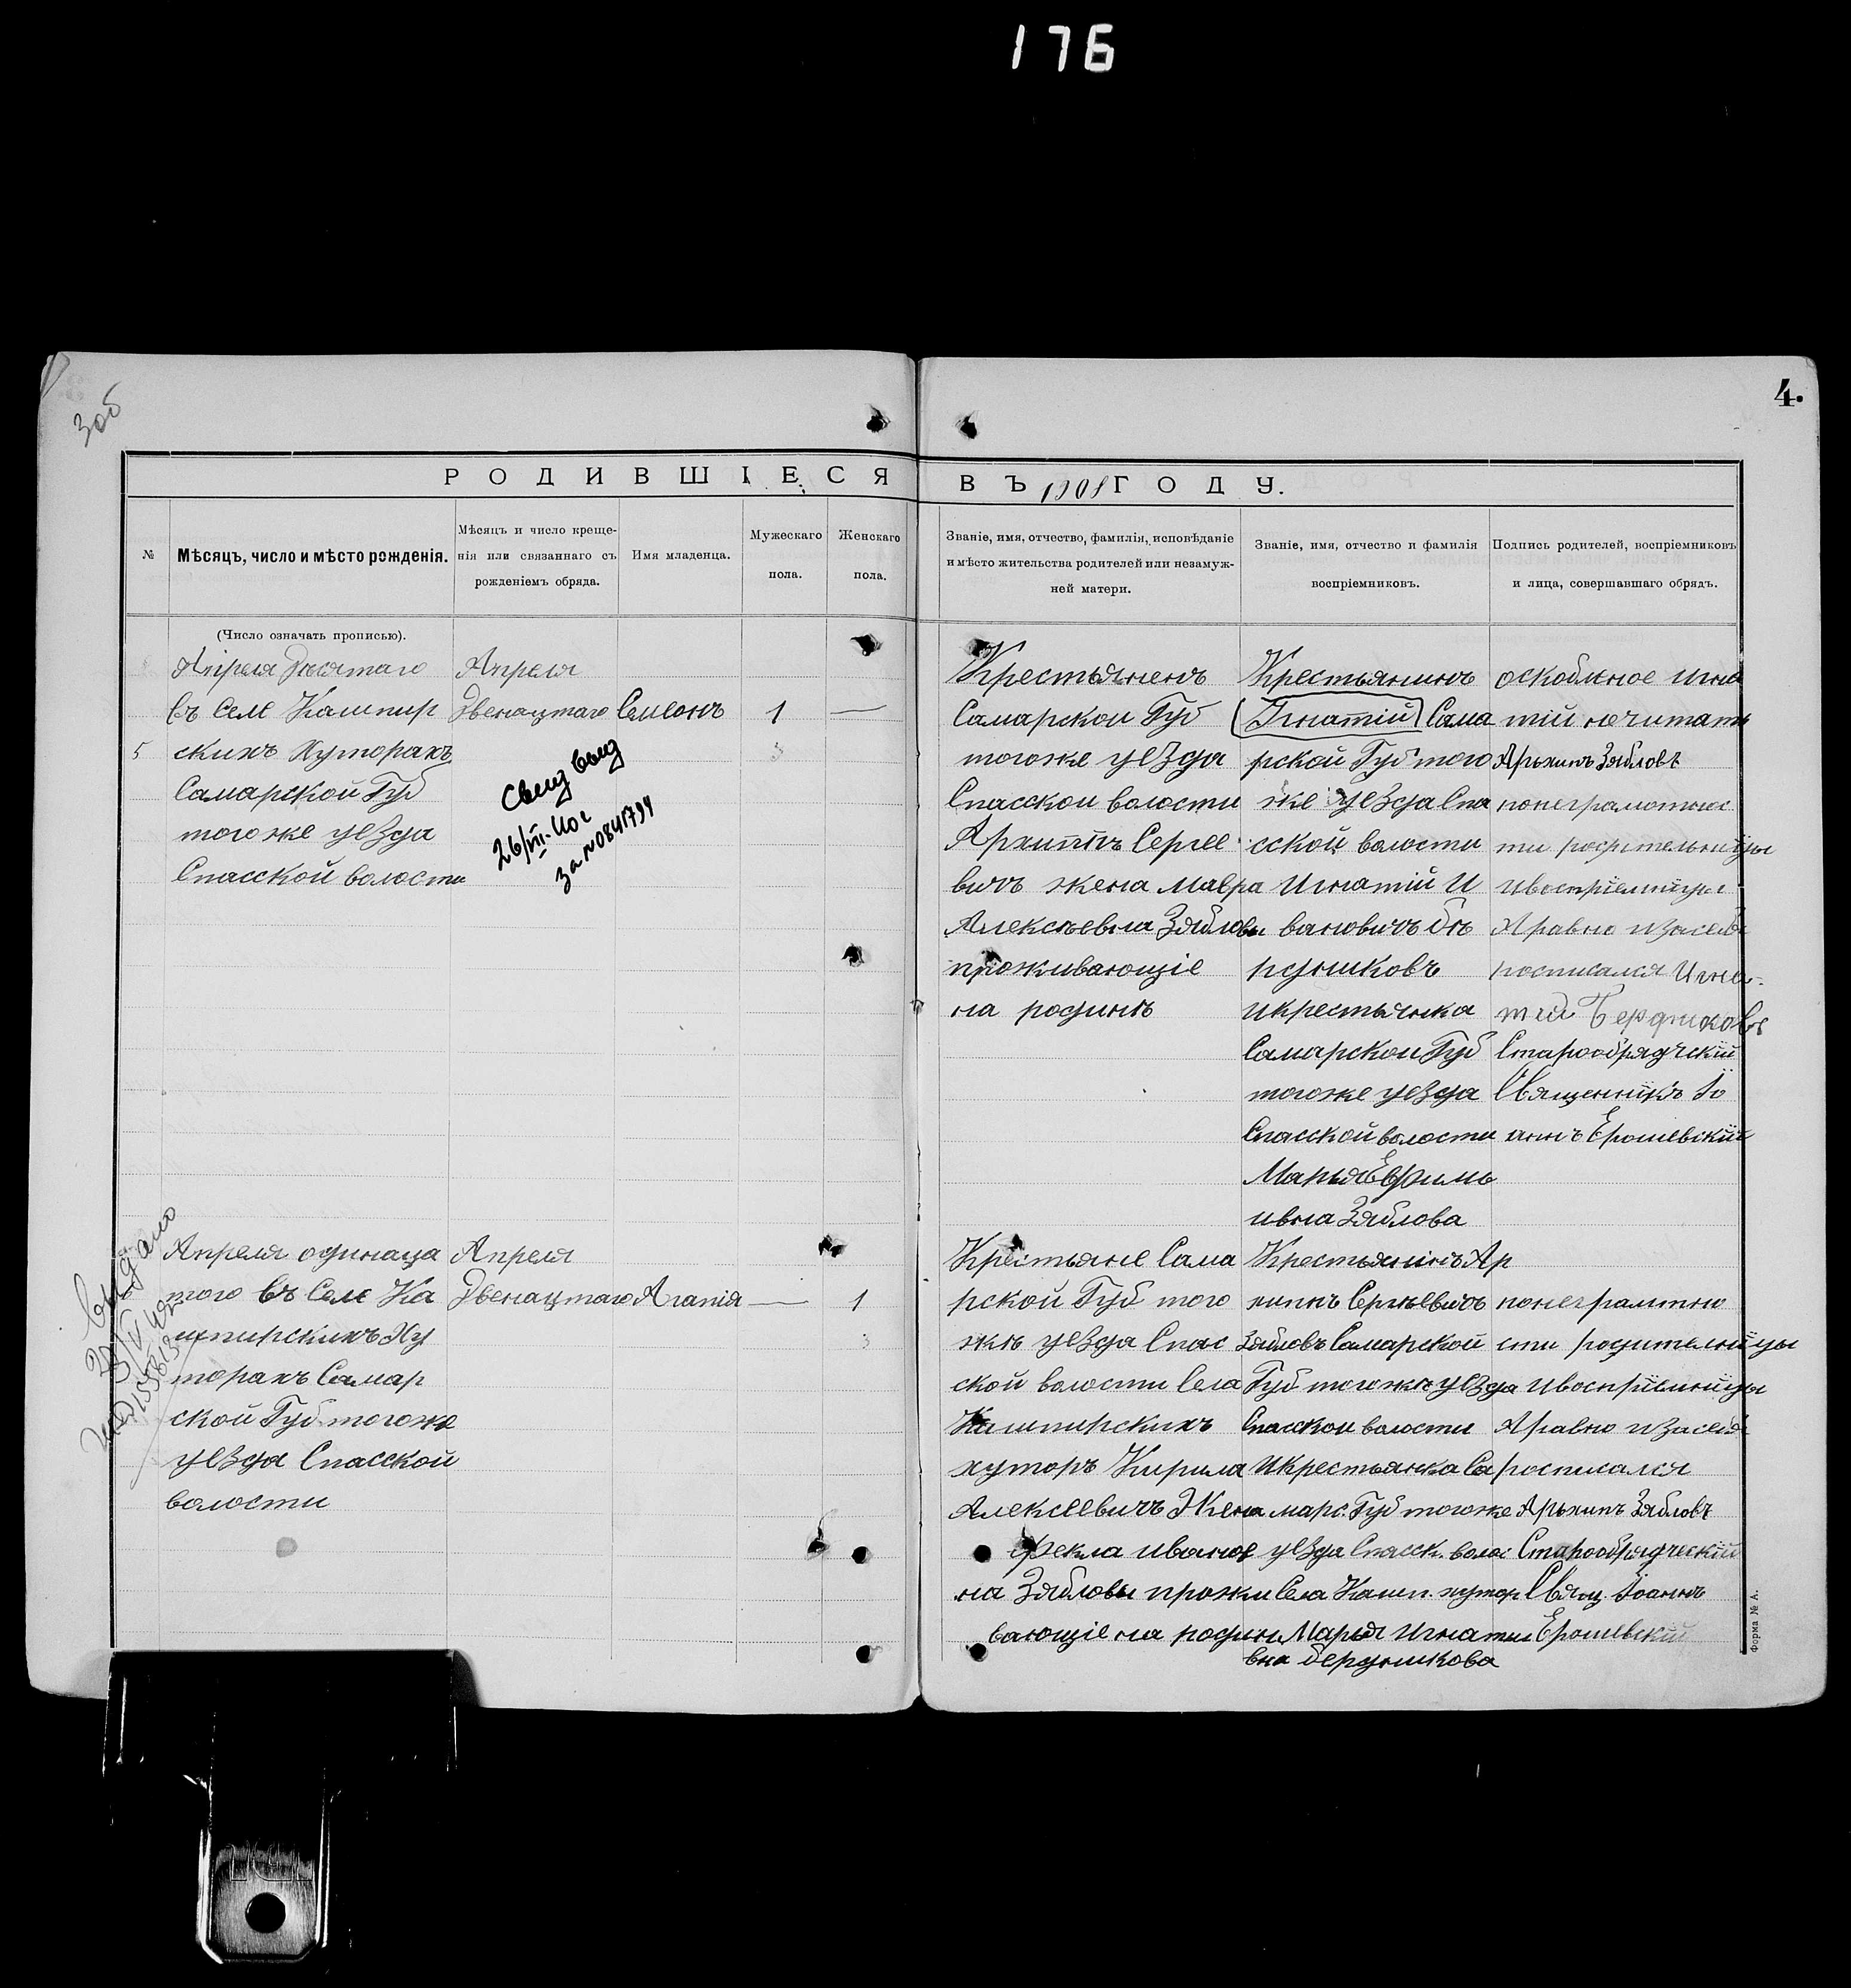 176
4.
3об
РОДИВШІЕСЯ ВЪ 1908 ГОДУ.
№
Мѣсяцъ, число и мѣсто рожденія.
Мѣсяцъ и число креще-
нія или связаннаго съ
рожденіемъ обряда.
Имя младенца.
Мужескаго
пола.
Женскаго
пола.
Званіе, имя, отчество, фамилія, исповѣданіе
и мѣсто жительства родителей или незамуж-
ней матери.
Званіе, имя, отчество и фамилія
воспріемниковъ.
Подпись родителей, воспріемниковъ
и лица, совершавшаго обрядъ.
(Число означать прописью).
5
Апреля
въ Селе Кашпир
скихъ Хуторахъ
Самарской Губ
того же уезда
Спасской волости
Апреля
Двенацтаго
Симеонъ
1
—
3
26/VII-40 г
за №0841794
Крестьяненъ
Самарской Губ
тогоже уезда
Спасской волости
Архиппъ Сергее
вичъ жена Мавра
Алексъевна Зябловы
проживающіе
на родинъ
Крестьянинъ
Игнатій Сама
рской Губ того
же уезда Спа
сской волости
Игнатій И
вановичъ бъ
рдниковъ
икрестьянка
Самарской Губ
тогоже уезда
Спасской волости
Марья Ефимь
ивна Зяблова
оскобленое Игна
тій нечитать
Архипъ Зябловъ
понеграмотнос
ти родительницы
Ивоспріемницы
росписался Игна-
тій Бердниковъ
Старообрядчскій
Священникъ Іо
аннъ Ерошевскій
Выдано
Апреля одинаца
того въ Селе Ка
шпирскихъ Ху
торахъ Самар
ской Губ тогоже
уезда Спасской
волости
Апреля
Двенацтаго
Агапія
—
1
3
Крестьяне Сама
рской Губ того
жъ уезда Спас
ской волости Села
Кашпирскихъ
хуторъ Кирила
Алексеевичъ Жена
Фекла Иванов
на Зябловы прожи
вающіе на родин
Крестьянинъ Ар
хипъ Сергъевичъ
Зябловъ Самарской
Губ тогожъ уезда
Спасской волости
Икрестьянка Са
марс. Губ тогоже
уезда Спасск. воло:
Села Кашп. хутор
Марья Игнатие
вна бердникова
понеграмтно
сти родителницы
Ивоспріемницы
росписался
Архипъ Зябловъ
Старообрядческій
Свящ. Іоаннъ
Ерошевскій
Форма № А.